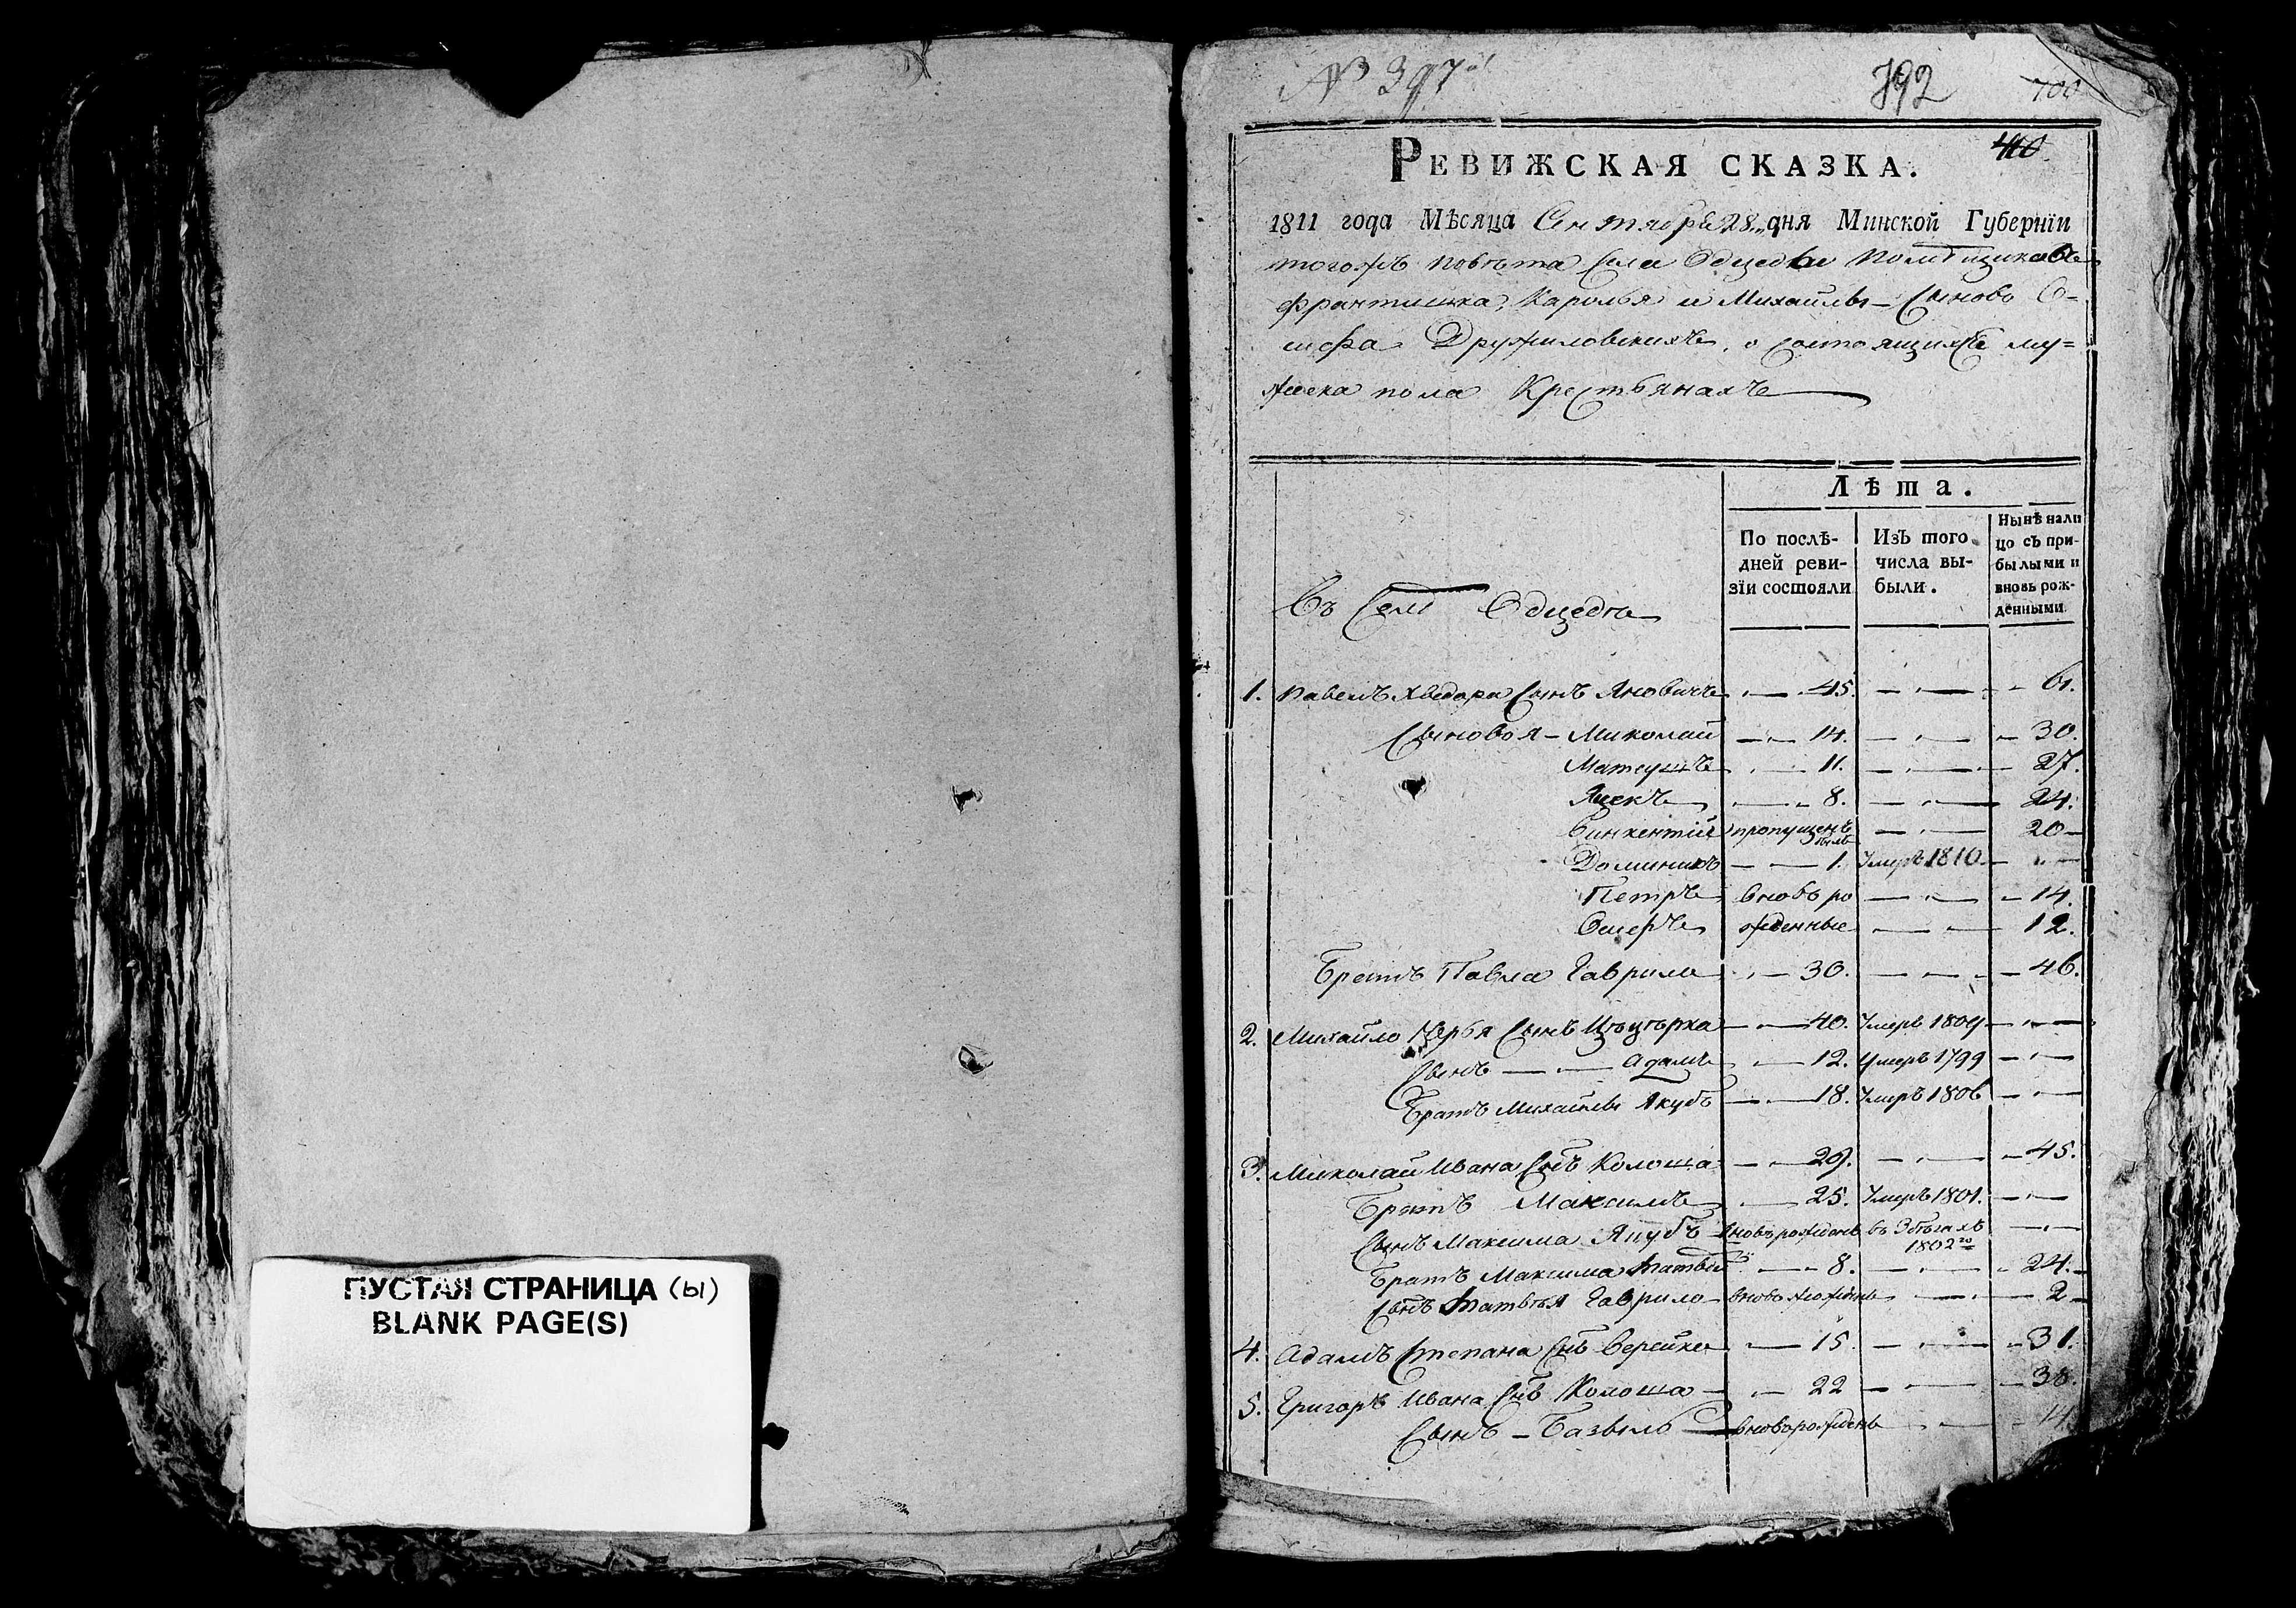 ПУСТАЯ СТРАНИЦА (ы)
BLANK PAGE(S)
№ 397
792
700
410
РЕВИЖСКАЯ СКАЗКА.
1811 года Мѣсяца Сентября 28 дня Минской Губернїи
тогожъ повѣта Села помѣщиковъ
Франтишка, Кароля и Михайлы Сыновъ О=
сифа Дружиловскихъ, о состоящихъ му=
жеска пола Крестьянахъ
Лѣта.
По послѣ-
дней реви-
зїи состояли
Изъ того
числа вы-
были.
Нынѣ нали
цо съ при-
былыми и
вновь рож-
денными
Въ Селѣ
1. Павелъ Хведора Сынъ Яновичъ 45. 61.
Сыновья – Миколай 14. 30.
Матеушъ 11. 27.
Яцекъ 8. 24.
Винкентій пропущенъ былъ 20
Доминикъ 1. Умеръ 1810
Петръ вновь ро 14.
Осифъ жденные 12.
Братъ Павла Гаврила 30. 46.
2. Михайло Сынъ 40. Умеръ 1809
Сынъ Адамъ 12. Умеръ 1799
Братъ Михайлы Якубъ 18. Умеръ 1806
3. Миколай Ивана Сынъ Колоша 29. 45.
Братъ Максимъ 25. Умеръ 1801.
Сынъ Максима Якубъ вновьрожденъ въ Збѣгахъ
1802го
Братъ Максима Матвѣй 8. 24.
Сынъ Матвѣя Гаврило вновьрожденъ 2
4. Адамъ Степана Снъ Верейко 15. 31.
5. Григоръ Ивана Снъ Колоша 22 38.
Сынъ – Базыль вновьрожденъ 4.